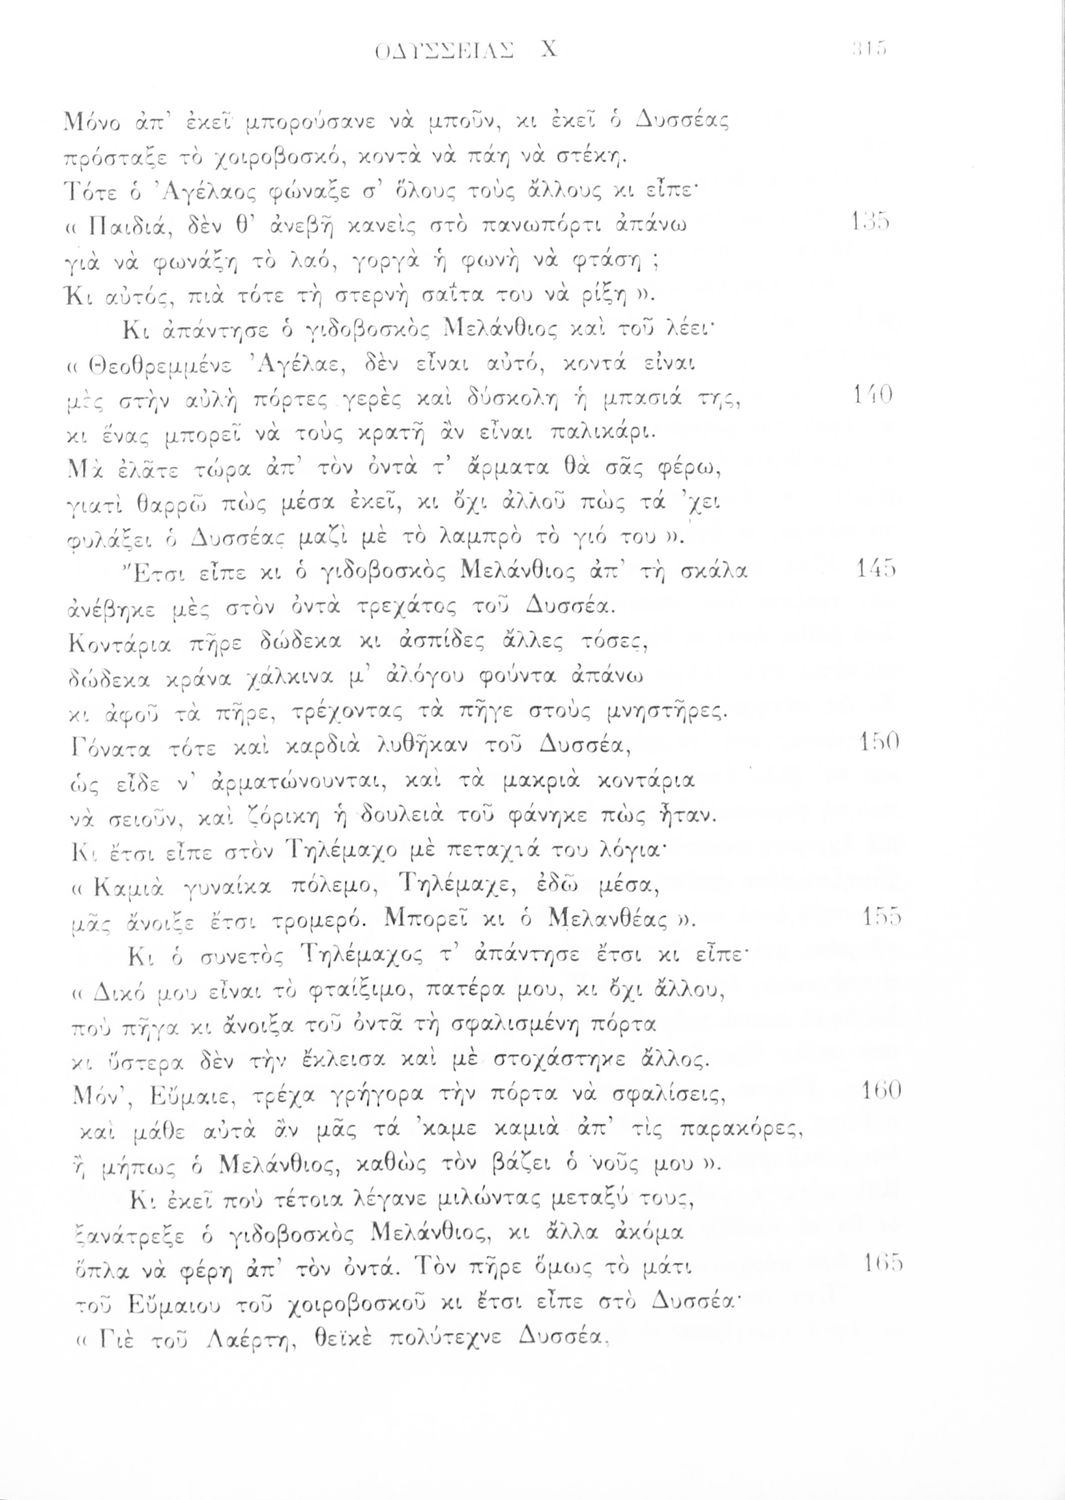 ΟΔΥΣΣΕΙΑΣ Χ 315
Μόνο ἀπ’ ἐκεῖ μπορούσανε νὰ μποῦν, κι ἐκεῖ ὁ Δυσσέας
πρόσταξε τὸ χοιροβοσκό, κοντὰ νὰ πάη νὰ στέκη.
Τότε ὁ Ἀγέλαος φώναξε σ’ ὅλους τοὺς ἄλλους κι εἶπε·
« Παιδιά, δὲν θ’ ἀνεβῆ κανεὶς στὸ πανωπόρτι ἀπάνω 135
γιὰ νὰ φωνάξη τὸ λαό, γοργὰ ἡ φωνὴ νὰ φτάση ;
Κι αὐτός, πιὰ τότε τὴ στερνὴ σαΐτα του νὰ ρίξη ».
Κι ἀπάντησε ὁ γιδοβοσκὸς Μελάνθιος καὶ τοῦ λέει·
« Θεοθρεμμένε Ἀγέλαε, δὲν εἶναι αὐτό, κοντά εἰναι
μὲς στὴν αὐλὴ πόρτες γερὲς καὶ δύσκολη ἡ μπασιά της, 140
κι ἕνας μπορεῖ νὰ τοὺς κρατῆ ἂν εἶναι παλικάρι.
Μὰ ἐλᾶτε τώρα ἀπ’ τὸν ὀντὰ τ’ ἄρματα θὰ σᾶς φέρω,
γιατὶ θαρρῶ πὼς μέσα ἐκεῖ, κι ὄχι ἀλλοῦ πὼς τά ’χει
φυλάξει ὁ Δυσσέας μαζὶ μὲ τὸ λαμπρὸ τὸ γιό του ».
Ἔτσι εἶπε κι ὁ γιδοβοσκὸς Μελάνθιος ἀπ’ τὴ σκάλα 145
ἀνέβηκε μὲς στὸν ὀντὰ τρεχάτος τοῦ Δυσσέα.
Κοντάρια πῆρε δώδεκα κι ἀσπίδες ἄλλες τόσες,
δώδεκα κράνα χάλκινα μ’ ἀλόγου φούντα ἀπάνω
κι ἀφοῦ τὰ πῆρε, τρέχοντας τὰ πῆγε στοὺς μνηστῆρες.
Γόνατα τότε καὶ καρδιὰ λυθῆκαν τοῦ Δυσσέα, 150
ὡς εἶδε ν’ ἀρματώνουνται, καὶ τὰ μακριὰ κοντάρια
νὰ σειοῦν, καὶ ζόρικη ἡ δουλειὰ τοῦ φάνηκε πὼς ἦταν.
Κι ἔτσι εἶπε στὸν Τηλέμαχο μὲ πεταχιά του λόγια·
« Καμιὰ γυναίκα πόλεμο, Τηλέμαχε, ἐδῶ μέσα,
μᾶς ἄνοιξε ἔτσι τρομερό. Μπορεῖ κι ὁ Μελανθέας ». 155
Κι ὁ συνετὸς Τηλέμαχος τ’ ἀπάντησε ἔτσι κι εἶπε·
« Δικό μου εἶναι τὸ φταίξιμο, πατέρα μου, κι ὄχι ἄλλου,
ποὺ πῆγα κι ἄνοιξα τοῦ ὀντᾶ τὴ σφαλισμένη πόρτα
κι ὕστερα δὲν τὴν ἔκλεισα καὶ μὲ στοχάστηκε ἄλλος.
Μόν’, Εὔμαιε, τρέχα γρήγορα τὴν πόρτα νὰ σφαλίσεις, 160
καὶ μάθε αὐτὰ ἂν μᾶς τά ’καμε καμιὰ ἀπ’ τὶς παρακόρες,
ἢ μήπως ὁ Μελάνθιος, καθὼς τὸν βάζει ὁ νοῦς μου ».
Κι ἐκεῖ ποὺ τέτοια λέγανε μιλώντας μεταξύ τους,
ξανάτρεξε ὁ γιδοβοσκὸς Μελάνθιος, κι ἄλλα ἀκόμα
ὅπλα νὰ φέρη ἀπ’ τὸν ὀντά. Τὸν πῆρε ὅμως τὸ μάτι 165
τοῦ Εὔμαιου τοῦ χοιροβοσκοῦ κι ἔτσι εἶπε στὸ Δυσσέα·
« Γιὲ τοῦ Λαέρτη, θεϊκὲ πολύτεχνε Δυσσέα,